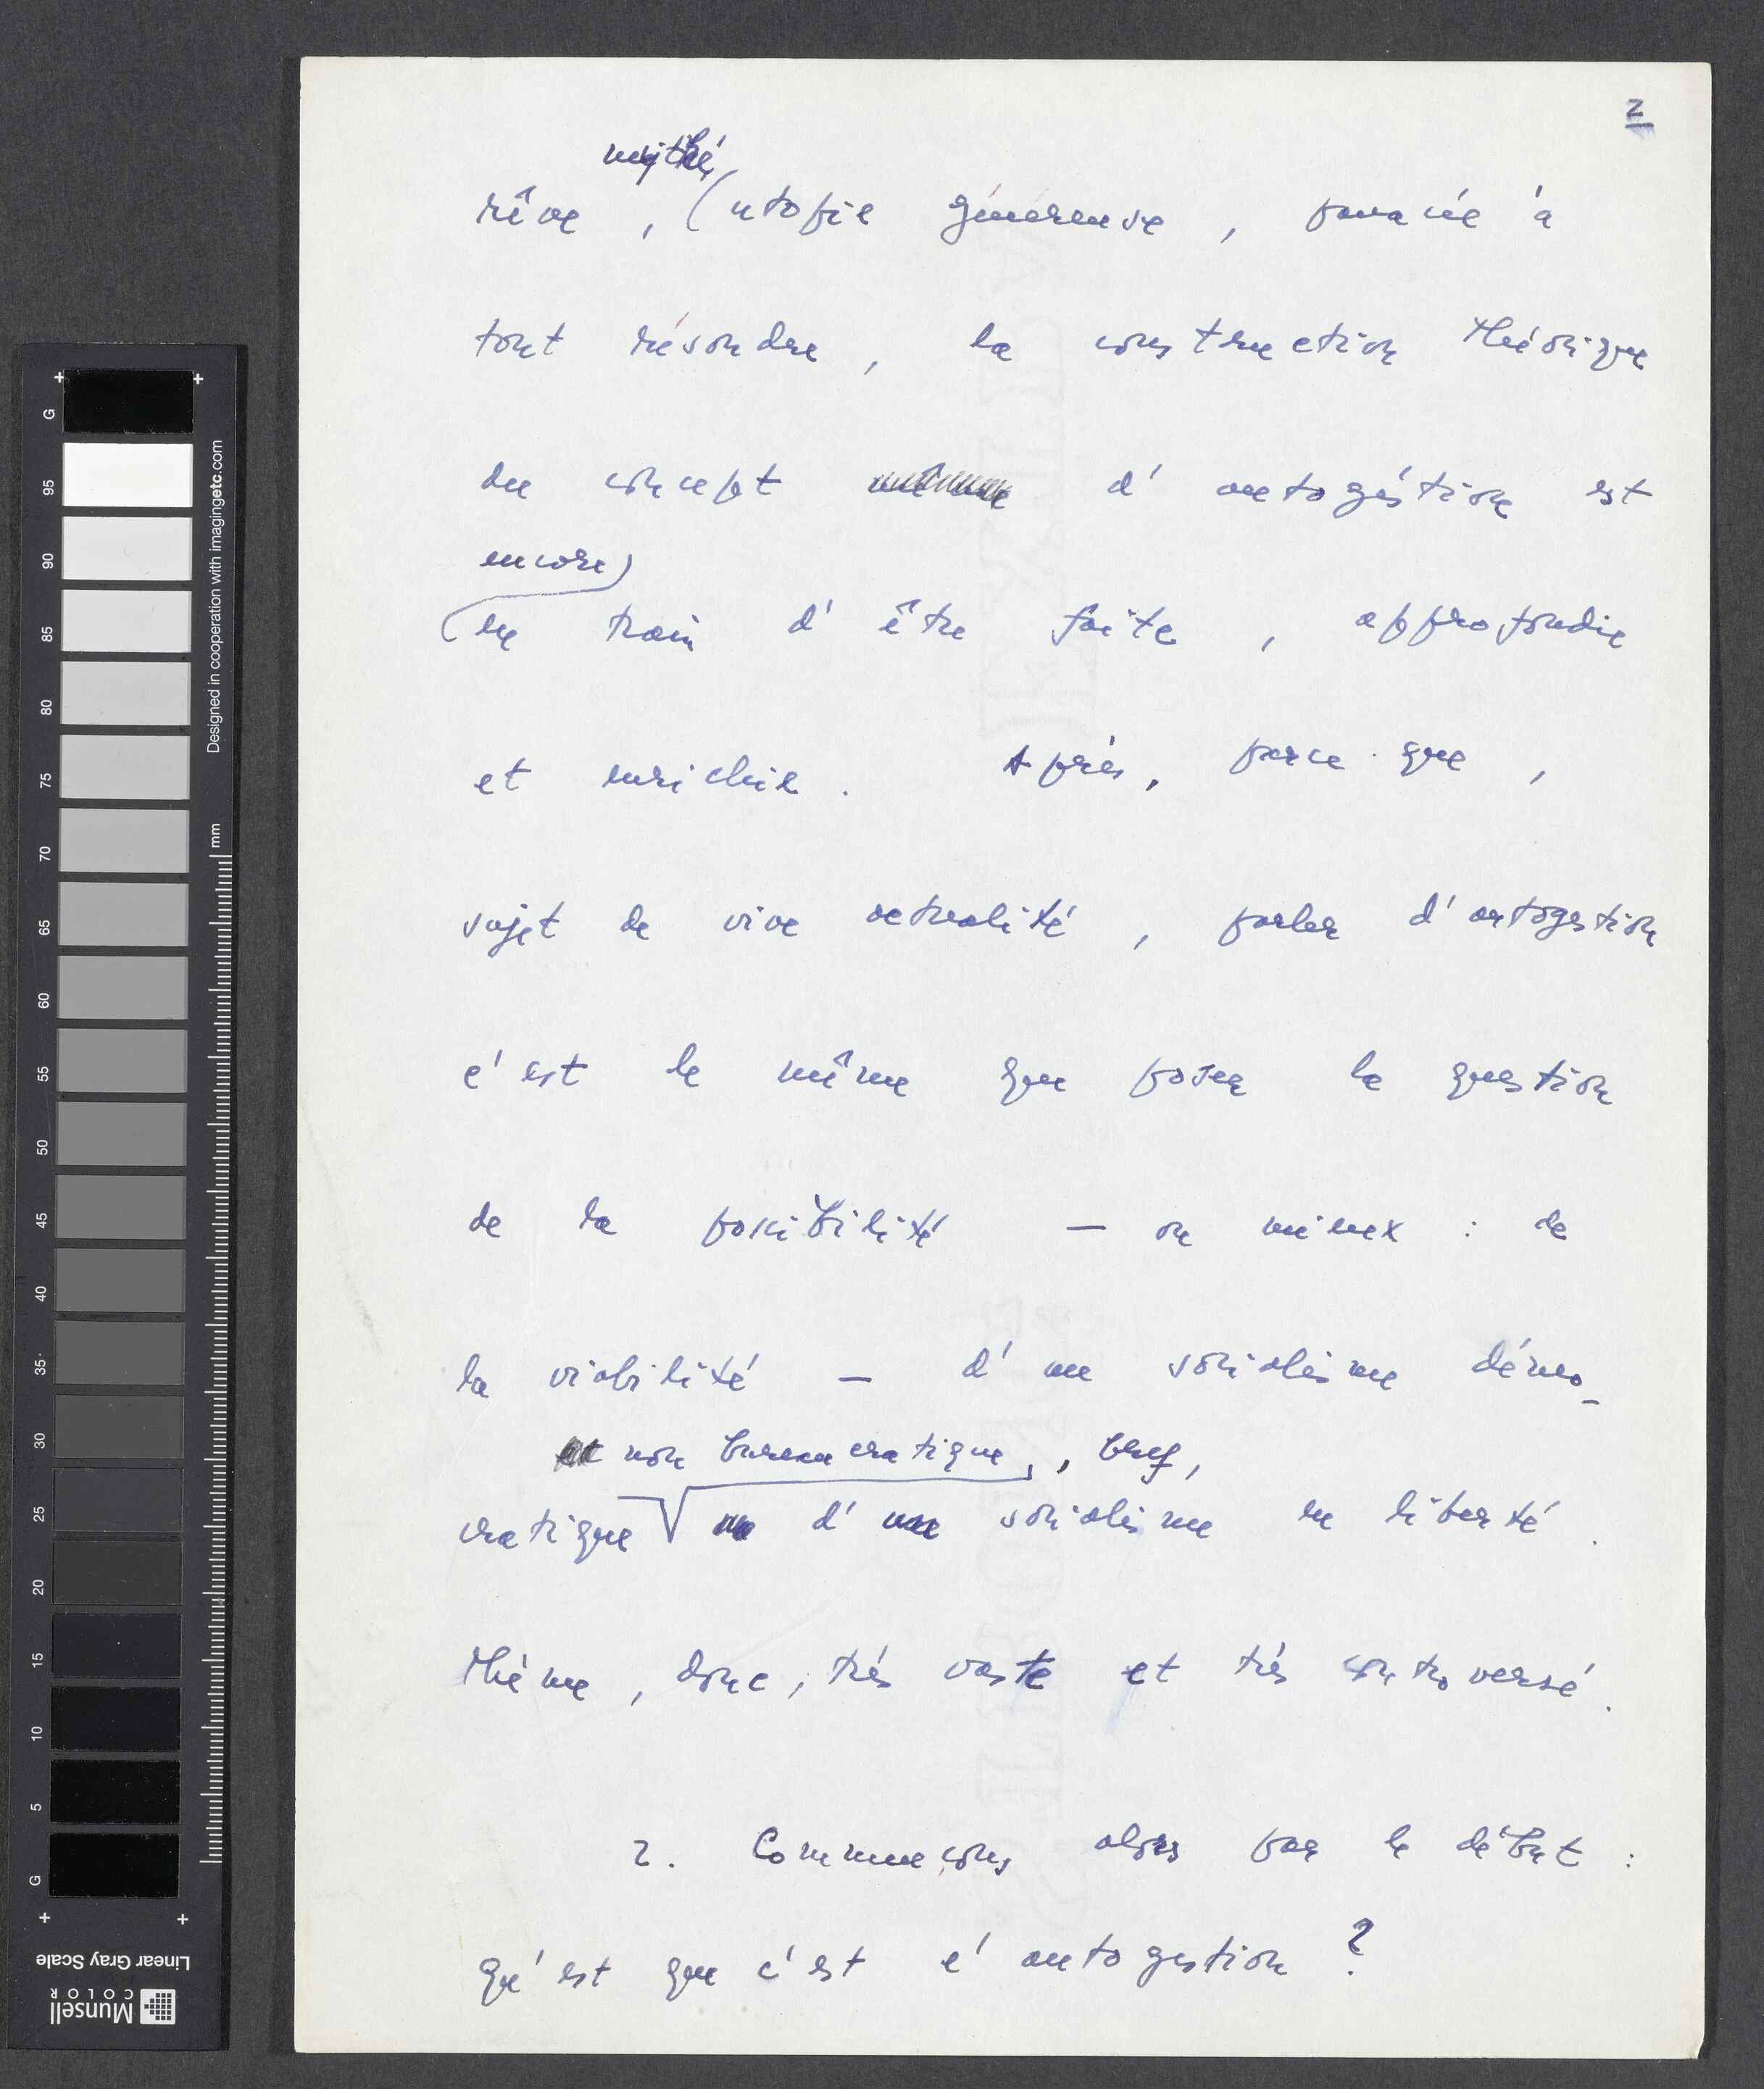 2
mythe,
rêve, (utopie généreuse, panacée à
tout résoudre, la construction théorique
du concept même d'autogéstion est
encore)
(en train d'être faite, approfondie
et enrichie. Après, parce que,
sujet de vive actualité, parler d'autogestion
c'est le même que poser la question
de la possibilité — ou mieux : de
la viabilité — d'un socialisme démo-
et non bureaucratique, , bref,
cratique d'un socialisme en liberté.
Thème, donc, très vaste et très controversé.
2. Commençons alors par le début :
qu'est que c'est l'autogestion ?
G
95
90
85
80
75
70
65
60
55
50
45
40
35
30
25
20
15
10
5
G
mm
Designed in cooperation with imagingetc.com
Linear Gray Scale
Munsell
COLOR